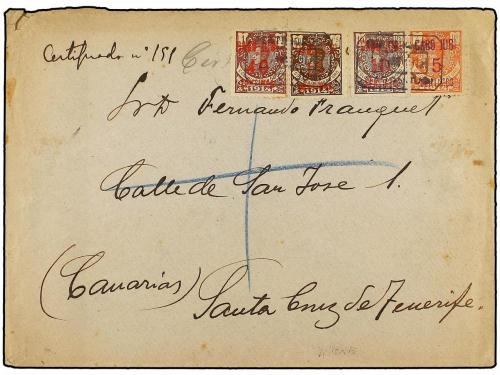 Certificado nº 151
1914 1914
CABO JUBY
Sr D Fernando Franquet
Calle de San Jose 1.
(Canarias)
Santa Cruz de Tenerife.